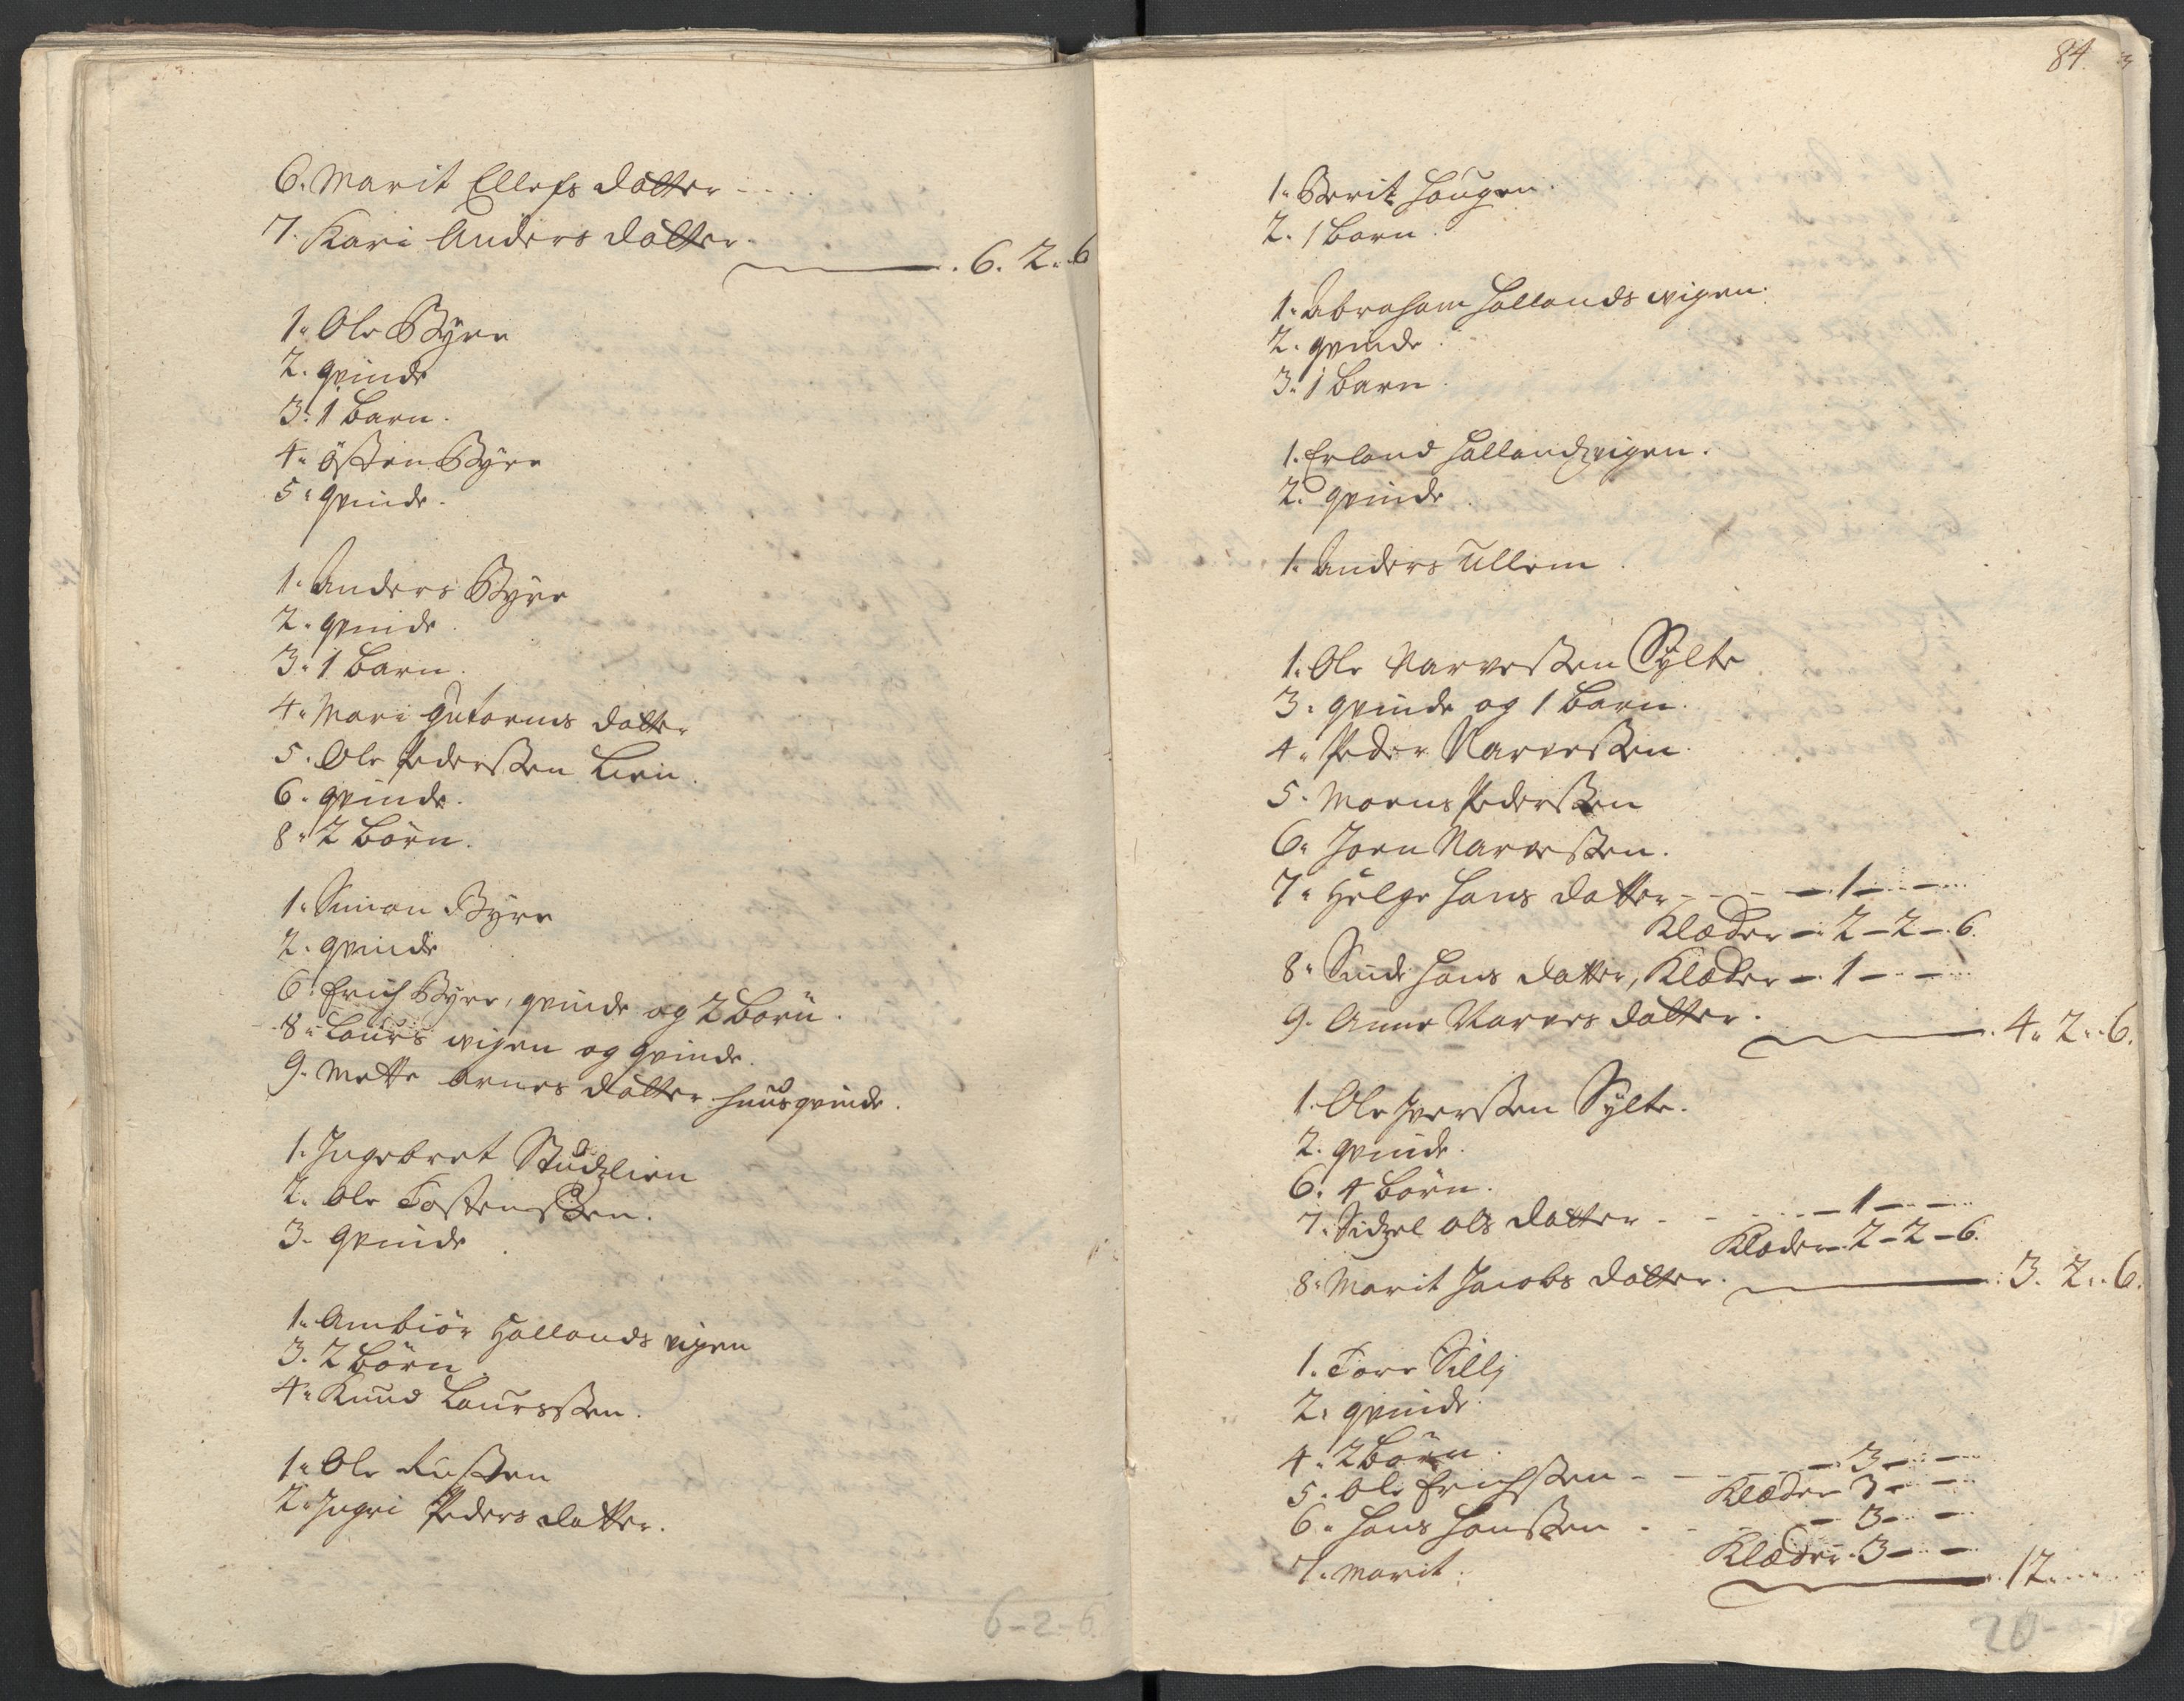 6. Marit Ellefs datter
7. Kari Anders datter
6. 2. 6
1. Ole Byre
2. qvinde
3. 1 barn.
4. östen Byre
5. qvinde.
1. Anders Byre
2. qvinde
3. 1 barn.
4. Mari gutorms datter
5. Ole Pederssen Lien.
6. qvinde.
8. 2 börn.
1. Simon Byre
2. qvinde
6. Erich Byre, qvinde og 2 börn.
8. Laurs wigen og qvinde.
9. Mette arnes datter huusqvinde.
1. Ingebret Studzlien
2. Ole Tostenssen.
3. qvinde
1. Ambiör Hallands vigen
3. 2 börn
4. Knud Laursssen.
1. Ole
2. Ingri Peders datter.
6-2-6
84
1. Berit Haugen.
2. 1 barn.
1. Abraham Hallands wigen.
2. qvinde
3. 1 barn.
1. Erland Hallandzvigen.
2. qvinde
1. Anders Ullem
1. Ole Narvessen Sylte
3. qvinde og 1 barn.
4. Peder Narvessen.
5. Mons Pederssen
6. Joen Narvessen.
7. Helge Hans datter - 1 -
Klæder - 2 - 2 - 6.
8. Hans datter, Klæder - 1 -
9. Anne Narves datter.
4. 2. 6.
1. Ole Iverssen Sylte.
2. qvinde.
6. 4 börn.
7. Sidzel Ols datter - 1 -
Klæder 2 - 2 - 6.
8. Marit Jacobs datter. 3. 2. 6.
1. Tore Sillj
2. qvinde.
4. 2 börn.
5. Ole Erichssen - 3 -
Klæder 3 -
6. Hans Hanssen - 3 -
Klæder 3 -
7. Marit.
12
20